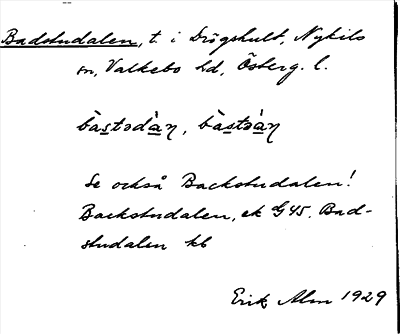 Badstudalen, t. i Drögshult, Nykils
sn, Valkebo hd, Österg. l.
bàstodàn, bàstàn
Se också Backstudalen!
Backstudalen, ek G45. Bad-
studalen kb
Erik Alm 1929